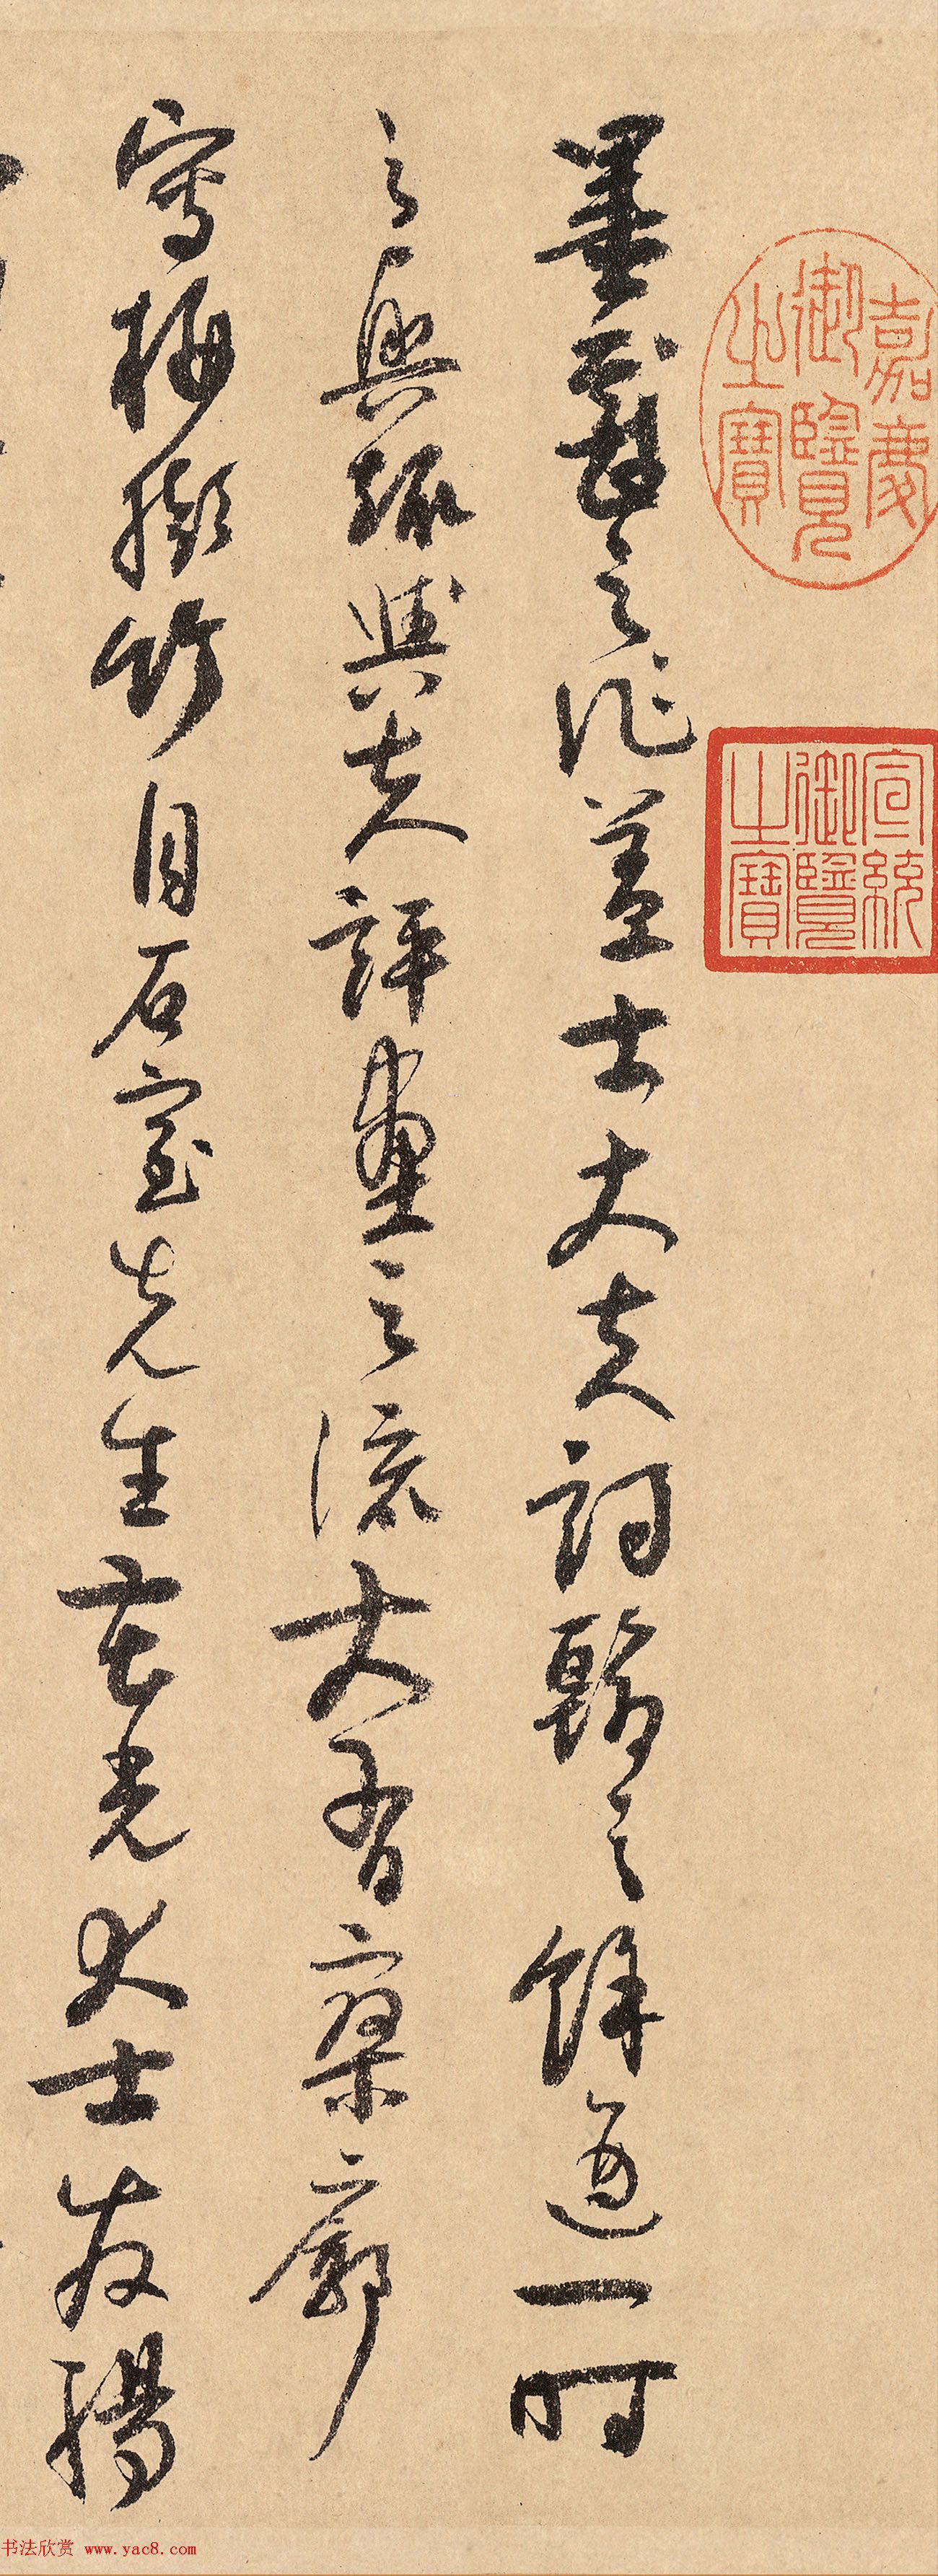 嘉慶御覽之寶
宣統御覽之寶
墨戲之作蓋士大夫詞翰之餘適一時
之興趣與夫評畫之流大有寥廓
寫梅擬竹自石室先生花光大士發揚
书法欣赏 www.yac8.com